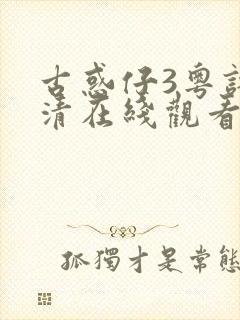 古惑仔3粵
清在綫觀看
孤獨才是常態